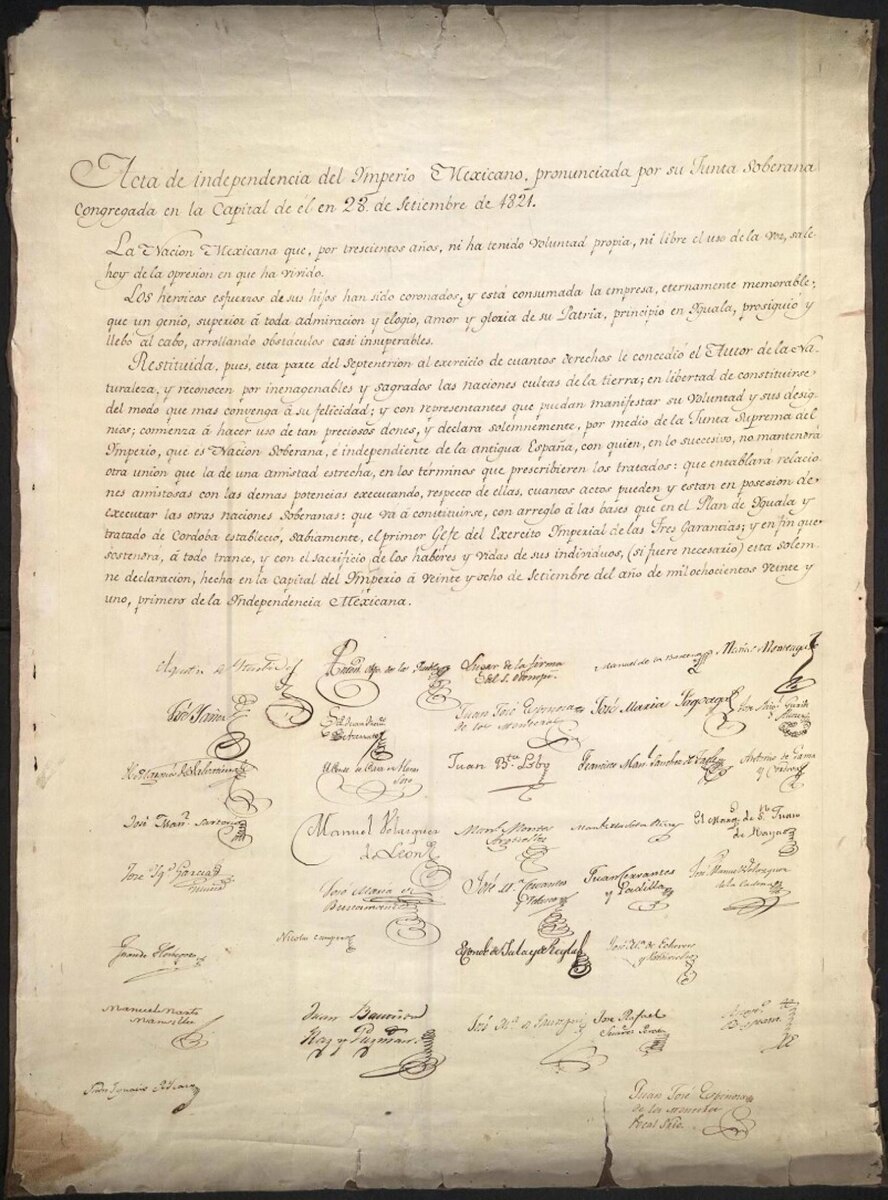 Acta de independencia del Imperio Mexicano, pronunciada por su Junta Soberana
congregada en la Capital de él en 28 de Setiembre de 1821.
La Nacion Mexicana que, por trescientos años, ni ha tenido voluntad propia, ni libre el uso de la voz, sale
hoy de la opresion en que ha vivido.
Los heroicos esfuerzos de sus hijos han sido coronados, y está consumada la empresa, eternamente memorable,
que un genio, superior á toda admiracion y elogio, amor y gloria de su Patria, principio en Iguala, prosiguió y
llebo al cabo, arrollando obstaculos casi insuperables.
Restituida, pues, esta parte del Septentrion al exercicio de cuantos derechos le concedió el Autor de la Na-
turaleza, y reconocen por inenagenables y sagrados las naciones cultas de la tierra; en libertad de constituirse
del modo que mas convenga á su felicidad; y con representantes que puedan manifestar su voluntad y sus desig-
nios; comienza á hacer uso de tan preciosos dones, y declara solemnemente, por medio de la Junta Suprema del
Imperio, que es Nacion Soberana, é independiente de la antigua España, con quien, en lo succesivo, no mantendrá
otra union que la de una amistad estrecha, en los términos que prescribieren los tratados: que entablará relacio-
nes amistosas con las demas potencias executando, respecto de ellas, cuantos actos pueden y estan en posesion de
executar las otras naciones soberanas: que va á constituirse, con arreglo á las bases que en el Plan de Iguala y
tratado de Cordoba establecio, sabiamente, el primer Gefe del Exercito Imperial de las Tres Garantias; y en fin que
sostendrá, á todo trance, y con el sacrificio de los haberes y vidas de sus individuos, (si fuere necesario) esta solem-
ne declaración, hecha en la capital del Imperio á veinte y ocho de Setiembre del año de mil ochocientos veinte y
uno, primero de la Independencia Méxicana.
Agustin de Iturbide
Lugar de la firma
del S. Odonojú
Manuel de la Barcena
Matias Monteagudo
José Yañez
Juan José Espinosa
de los Monteros
José Maria Fagoaga
Juan B.ta Lobo
Antonio de Gama
y Cordova
José Man.l Sartorio
Manuel Velazquez
de Leon
Man.l Montes
Arguelles
El Marq.s de S.n Juan
de Rayas
José Ign.o Garcia
José Maria de
Bustamante
José M.a Cervantes
y Velasco
Juan Cervantes
y Padilla
José Manuel Velazquez
de la Cadena
Juan de Horbegoso
Nicolas Campero
El Conde de Jala y de Regla
José M.a de Echevers
y Valdivielso
Manuel Martz
Mansilla
Juan Bautista
Raz y Guzman
José M.a de Jauregui
José Rafael
Suarez Pereda
Juan José Espinosa
de los Monteros
Vocal Srio.